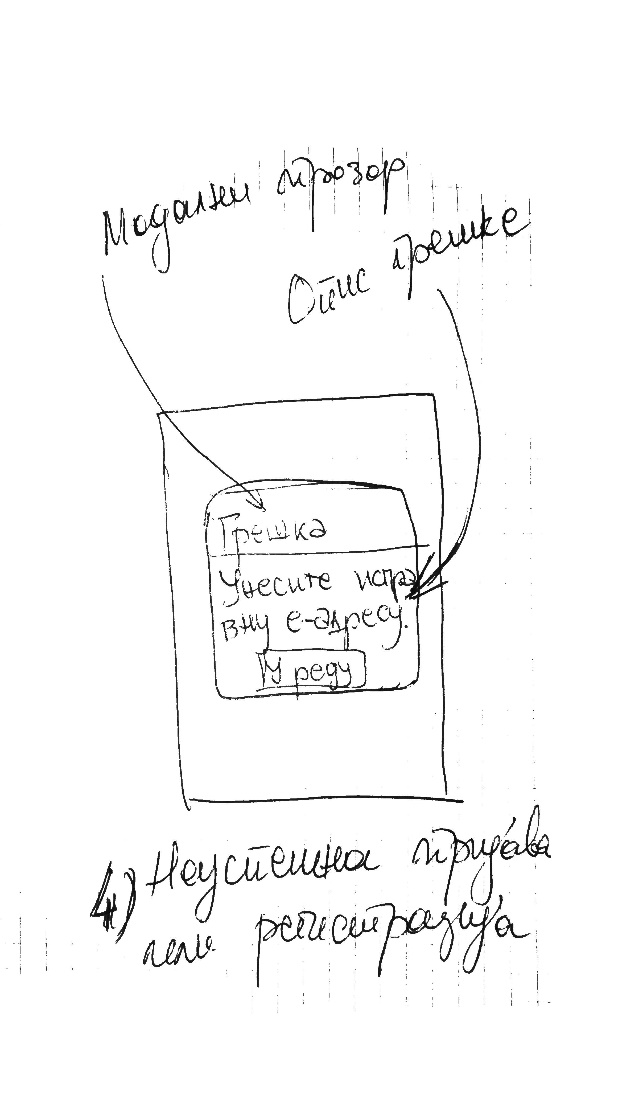 Модални прозор
Опис грешке
Грешка
Унесите испра
вну е-адресу.
У реду
4) Неуспешна пријава
или регистрација